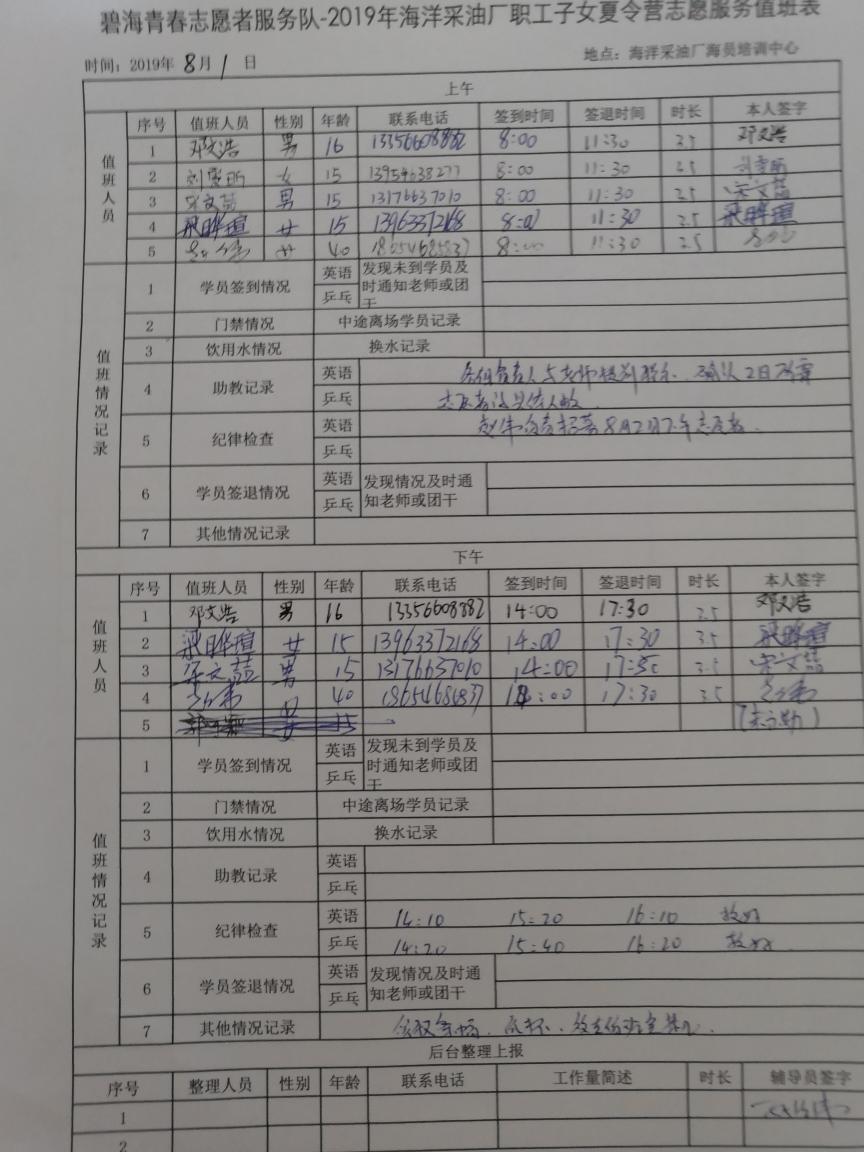 碧海青春志愿者服务队-2019年海洋采油厂职工子女夏令营志愿服务值班表
时间：2019年 8月 1 日 地点：海洋采油厂海员培训中心
上午
值班人员
序号 值班人员 性别 年龄 联系电话 签到时间 签退时间 时长 本人签字
1 邓文浩 男 16 13356608882 8:00 11:30 邓文浩
2 女 15 13954638277 8:00 11:30
3 宋文喆 男 15 13176637010 8:00 11:30 2.5 宋文喆
4 梁晔瑄 女 15 13963372168 8:00 11:30 2.5 梁晔瑄
5 女 40 8:00 11:30 2.5
值班情况记录
1 学员签到情况 英语 乒乓 发现未到学员及时通知老师或团干
2 门禁情况 中途离场学员记录
3 饮用水情况 换水记录
4 助教记录 英语 乒乓
5 纪律检查 英语 乒乓
6 学员签退情况 英语 乒乓 发现情况及时通知老师或团干
7 其他情况记录
下午
值班人员
序号 值班人员 性别 年龄 联系电话 签到时间 签退时间 时长 本人签字
1 邓文浩 男 16 13356608882 14:00 17:30 邓文浩
2 梁晔瑄 女 15 13963372168 14:00 17:30 3.5 梁晔瑄
3 宋文喆 男 15 13176637010 14:00 宋文喆
4 女 40 17:30 3.5
5
值班情况记录
1 学员签到情况 英语 乒乓 发现未到学员及时通知老师或团干
2 门禁情况 中途离场学员记录
3 饮用水情况 换水记录
4 助教记录 英语 乒乓
5 纪律检查 英语 14:10 15:20 16:10 较好
乒乓 14:20 15:40 16:20 较好
6 学员签退情况 英语 乒乓 发现情况及时通知老师或团干
7 其他情况记录
后台整理上报
序号 整理人员 性别 年龄 联系电话 工作量简述 时长 辅导员签字
1
2